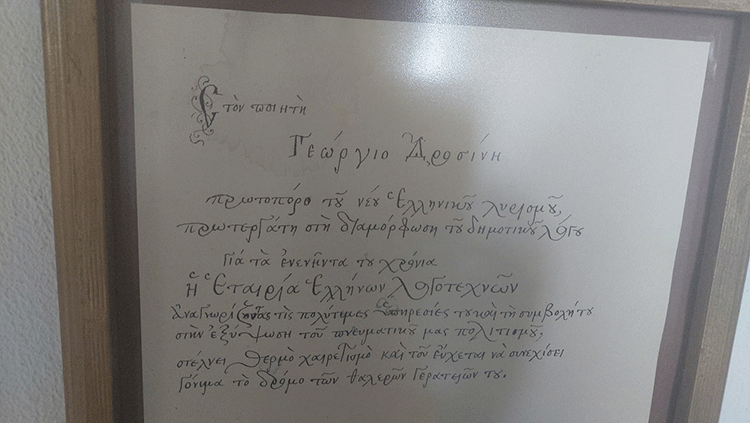 Στὸν ποιητὴ
Γεώργιο Δροσίνη
πρωτοπόρο τοῦ νέου Ἑλληνικοῦ λυρισμοῦ,
πρωτεργάτη στὴ διαμόρφωση τοῦ δημοτικοῦ λόγου
γιὰ τὰ ἐνενῆντα του χρόνια
ἡ Ἑταιρία Ἑλλήνων Λογοτεχνῶν
ἀναγνωρίζοντας τὶς πολύτιμες ὑπηρεσίες του καὶ τὴ συμβολή του
στὴν ἐξύψωση τοῦ πνευματικοῦ μας πολιτισμοῦ,
στέλνει θερμὸ χαιρετισμὸ καὶ τοῦ εὔχεται νὰ συνεχίσει
γόνιμα τὸ δρόμο τῶν θαλερῶν γερατειῶν του.